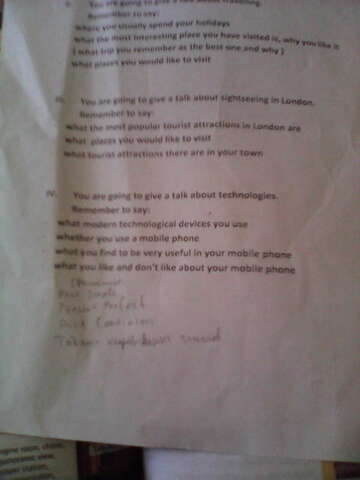 II. You are going to give a talk about travelling.
Remember to say:
where you usually spend your holidays
what the most interesting place you have visited is, why you like it
( what trip you remember as the best one and why )
what places you would like to visit
III. You are going to give a talk about sightseeing in London.
Remember to say:
what the most popular tourist attractions in London are
what places you would like to visit
what tourist attractions there are in your town
IV. You are going to give a talk about technologies.
Remember to say:
what modern technological devices you use
whether you use a mobile phone
what you find to be very useful in your mobile phone
what you like and don't like about your mobile phone
Past Simple
Present Perfect
engine room, shine,
panoramic view,
power station,